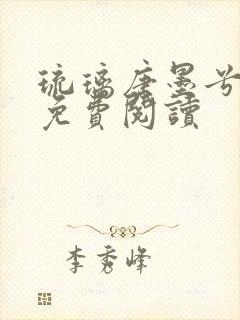 琉璃唐墨兮
免費閱讀
李秀峰